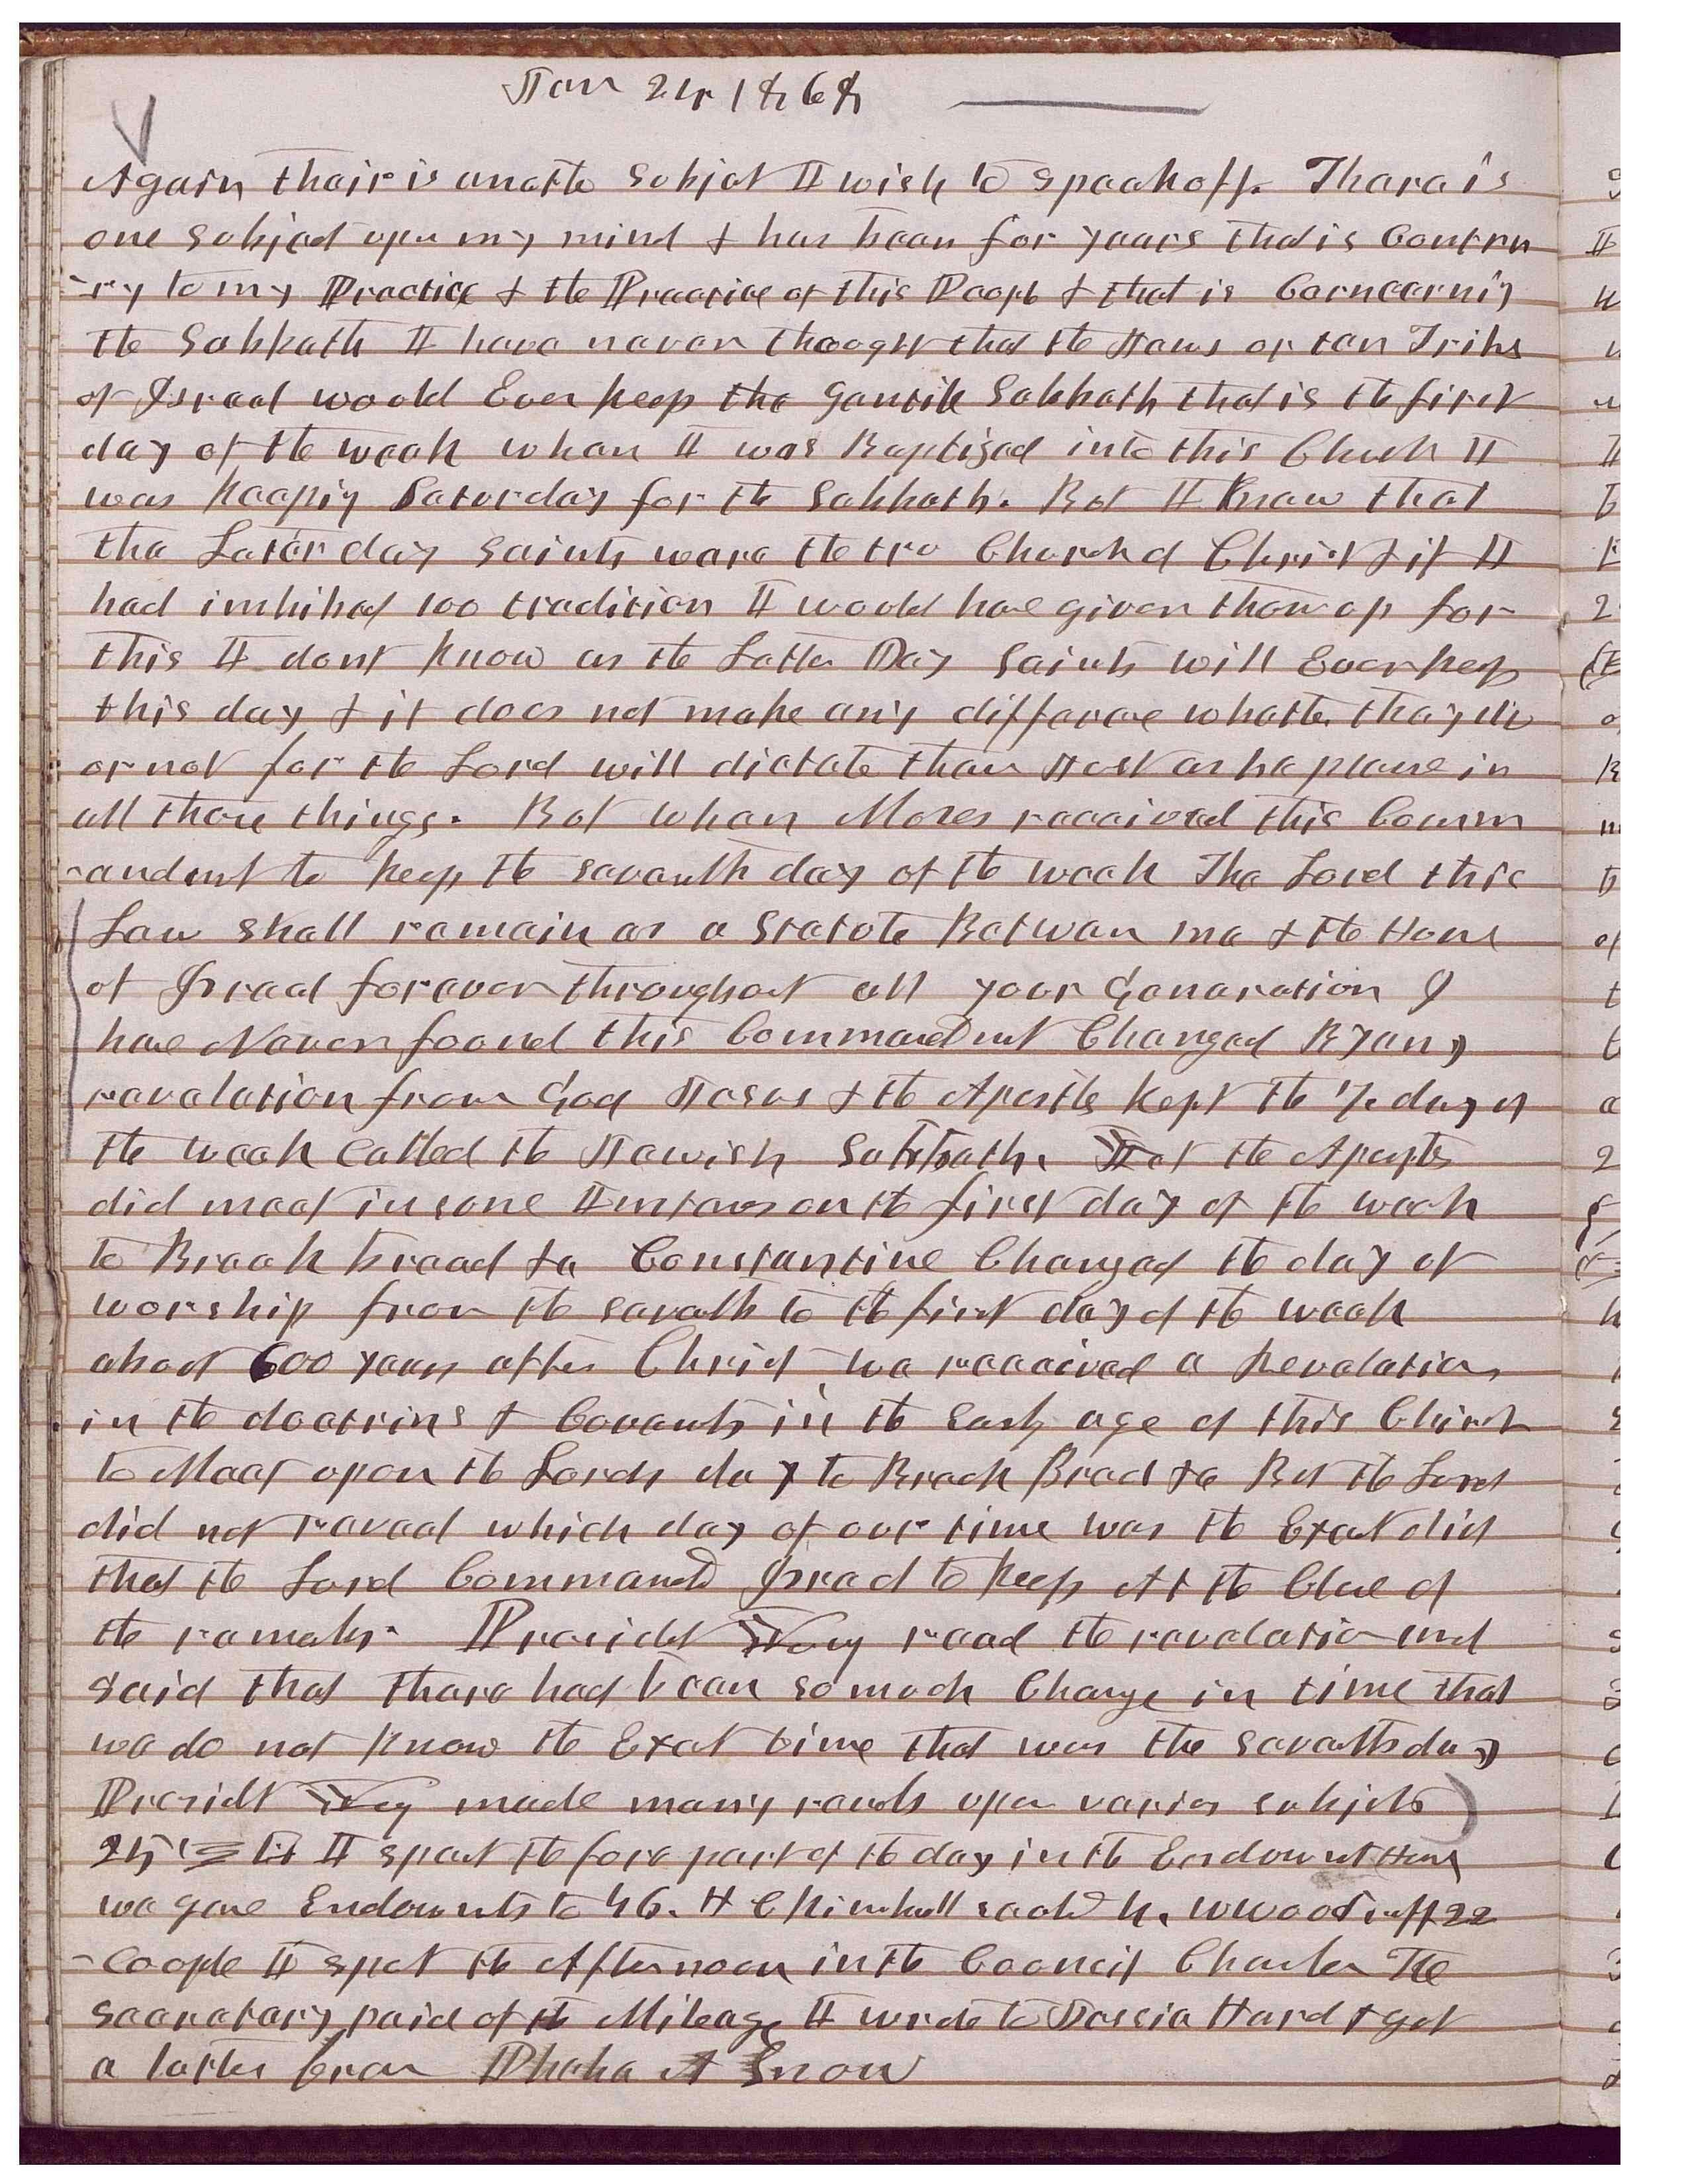 Jan 24, 1868
Again thair is another subject I wish to speak off. There is
one subject upon my mind & has been for years that is Contra
-ry to my Practice & the Practice of this People & that is Concerning
the Sabbath I have never thought that the Jews or ten Tribes
of Israel would Ever keep the Gentile Sabbath that is the first
day of the week when I was Baptized into this Church I
was keeping Saturday for the Sabbath. But I knew that
the Later day Saints were the tru Church of Christ & if I
had imbibed 100 tradition I would have given them up for
this I dont know as the Latter Day Saints will Ever keep
this day & it does not make any differance whether they do
or not for the Lord will dictate them Just as he please in
all those things. But when Moses received this Comm
-andmet to keep the seventh day of the week The Lord this
Law shall remain as a Statute Between me & the House
of Israel forever throughout all your Generation I
have Never found this Commandment Changed By any
revelation from God Jesus & the Apostles kept the 7. day of
the week Called the Jewish Sabbath. But the Apostles
did meet in some Instances on the first day of the week
to Break bread &c Constantine Changed the day of
worship from the seventh to the first day of the week
about 600 years after Christ we received a Revelation
in the doctrins & Covenants in the Early age of this Church
to Meet upon the Lords day to Break Bread &c But the Lord
did not reveal which day of our time was the Exact did
that the Lord Commanded Israel to keep At the Close of
the remarks. Presidet Young read the revelation and
said that there had been so much Change in time that
we do not know the Exact time that was the seventh day
Presidet Young made many remarks upon varios subjects
25 I spent the fore part of the day in the Endowmet House
we gave Endowments to 46. H C Kimball sealed 11. W Woodruff 22
-couple I spent the Afternoon in the Council Chamber The
secretary paid of the Mileage I wrote to Jessia Hard & got
a letter from Phebe A Snow